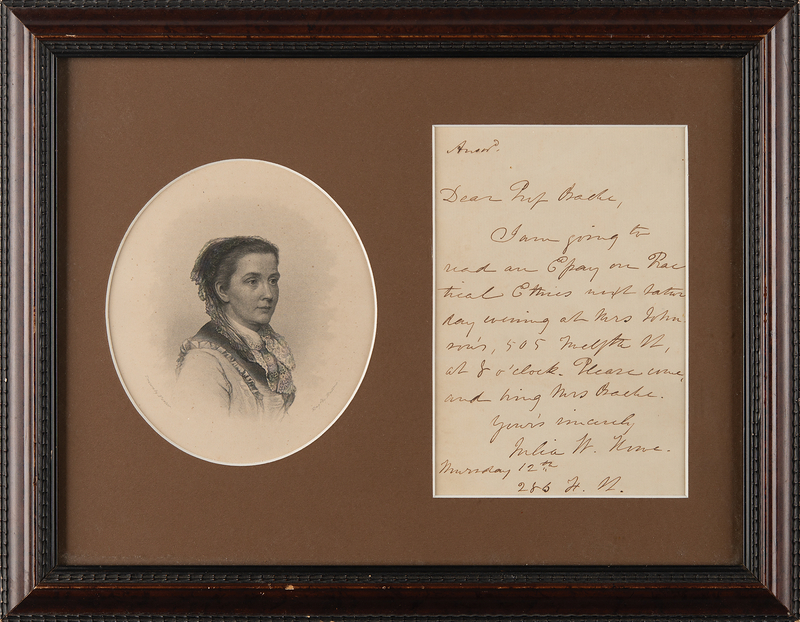 Answd.
Dear Prof Bache,
I am going to
read an Essay on Prac
tical Ethics next Satur
day evening at Mrs John
son's, 505 Twelfth St,
at 8 o'clock. Please come,
and bring Mrs Bache.
Yours sincerely
Julia W. Howe.
Thursday 12th
285 H. St.